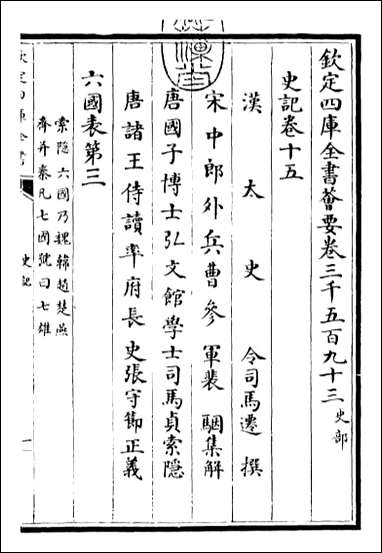 欽定四庫全書薈要卷三千五百九十三 史部
史記卷十五
漢太史令司馬遷撰
宋中郎外兵曹參軍裴駰集解
唐國子博士弘文館學士司馬貞索隱
唐諸王侍讀率府長史張守節正義
六國表第三
索隱六國乃魏韓趙楚燕
齊并秦凡七國號曰七雄
欽定四庫全書
史記
一